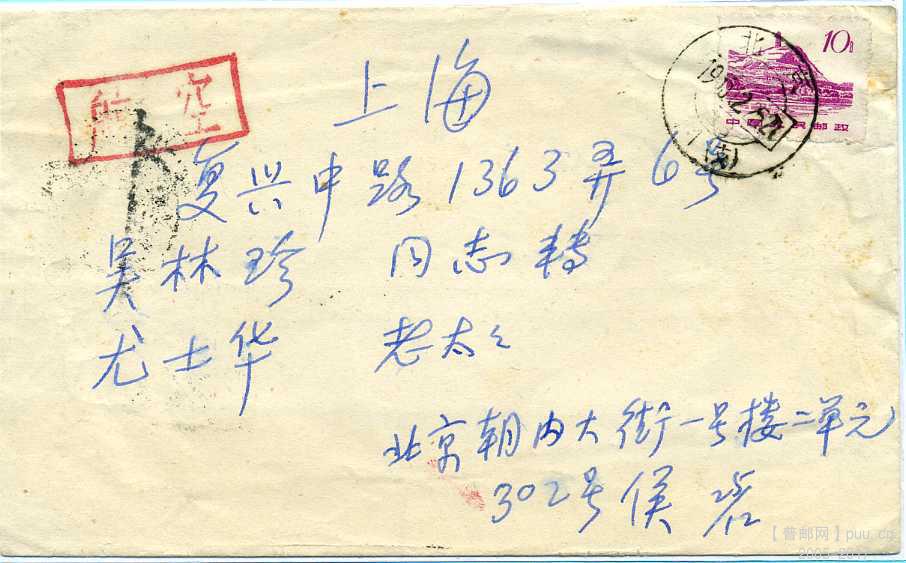 10分
中国人民邮政
北京
航空
上海
复兴中路1363弄6号
吴林珍 同志转
尤士华 老太々
北京朝内大街一号楼二单元
302号侯岩
【普邮网】puu.cn